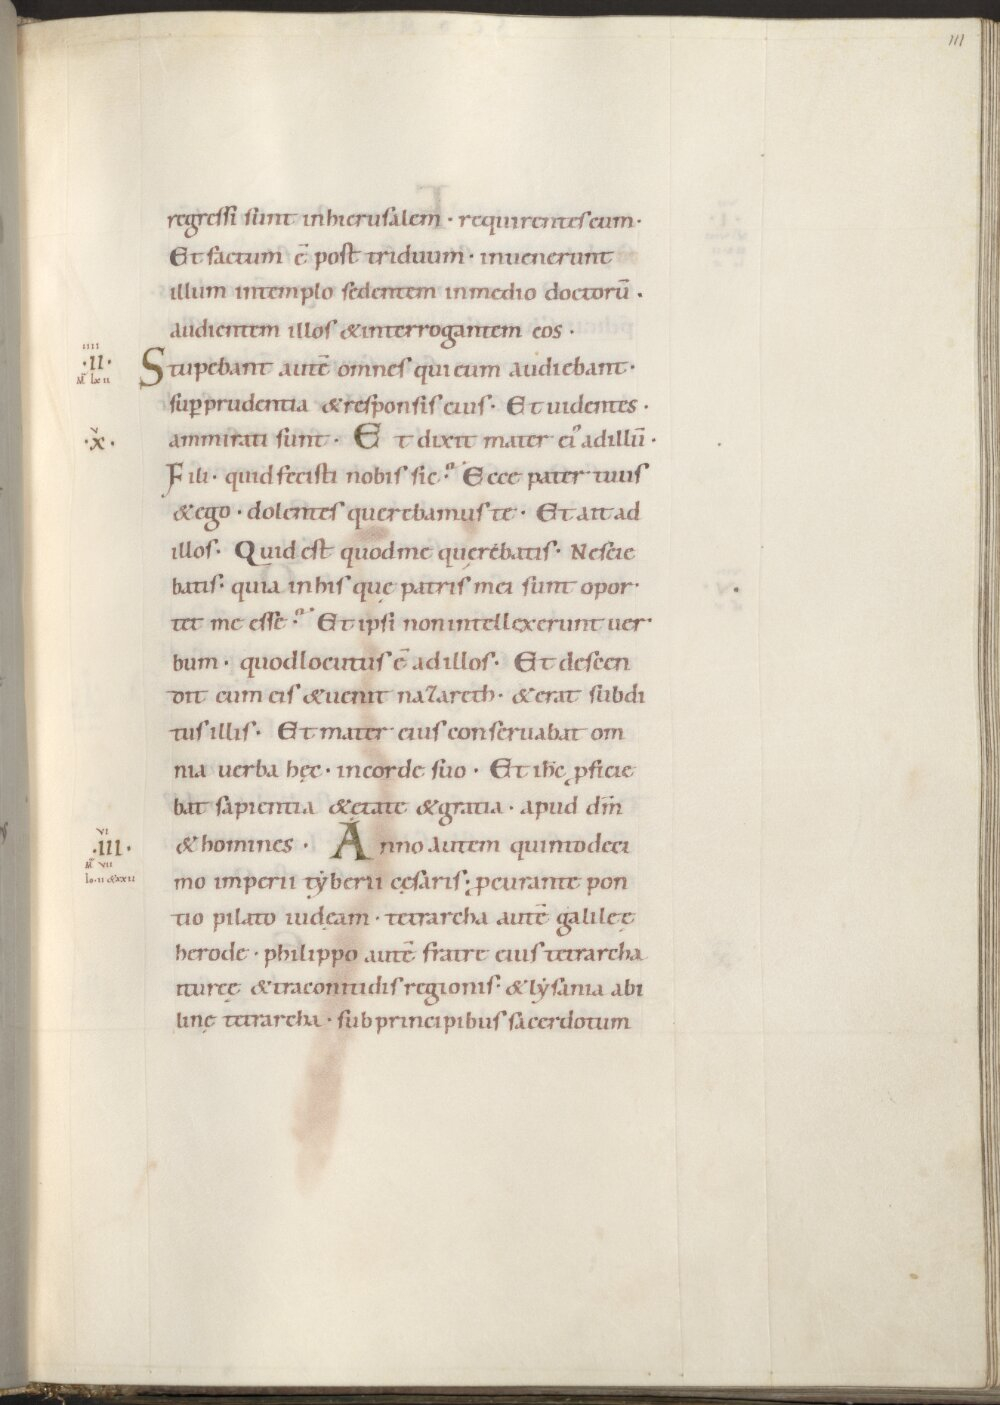 111
regressi sunt inhierusalem · requirentes eum ·
Et factum ē post triduum · inuenerunt
illum intemplo sedentem inmedio doctorū ·
audientem illos & interrogantem eos ·
IIII
· II · Stupebant autē omnes qui eum audiebant ·
M̄ lxII
sup̱ prudentia & responsis eius · Et uidentes ·
V
· X · ammirati sunt · Et dixit mater ei᾽ adillū ·
Fili · quid fecisti nobis sic · Ecce pater tuus
& ego · dolentes querebamus te · Et ait ad
illos · Quid est quod me querebatis · Nescie
batis · quia inhis quę patris mei sunt opor
tet me esse · Et ipsi non intellexerunt uer
bum · quod locutus ē adillos · Et descen
dit cum eis & uenit nazareth · & erat subdi
tus illis · Et mater eius conseruabat om
nia uerba hęc · incorde suo · Et ih̄c ꝓficie
bat sapientia & ętate & gratia · apud dm̄
VI
· III · & homines · Anno autem quintodeci
M̄ VII
Io · II & XXII
mo imperii tẏberii cęsaris · ꝓcurante pon
tio pilato iudęam · tetrarcha autē galilęę
herode · philippo autē fratre eius tetrarcha
ituręę & traconitidis regionis · & lẏsania abi
linę tetrarcha · sub principibus sacerdotum